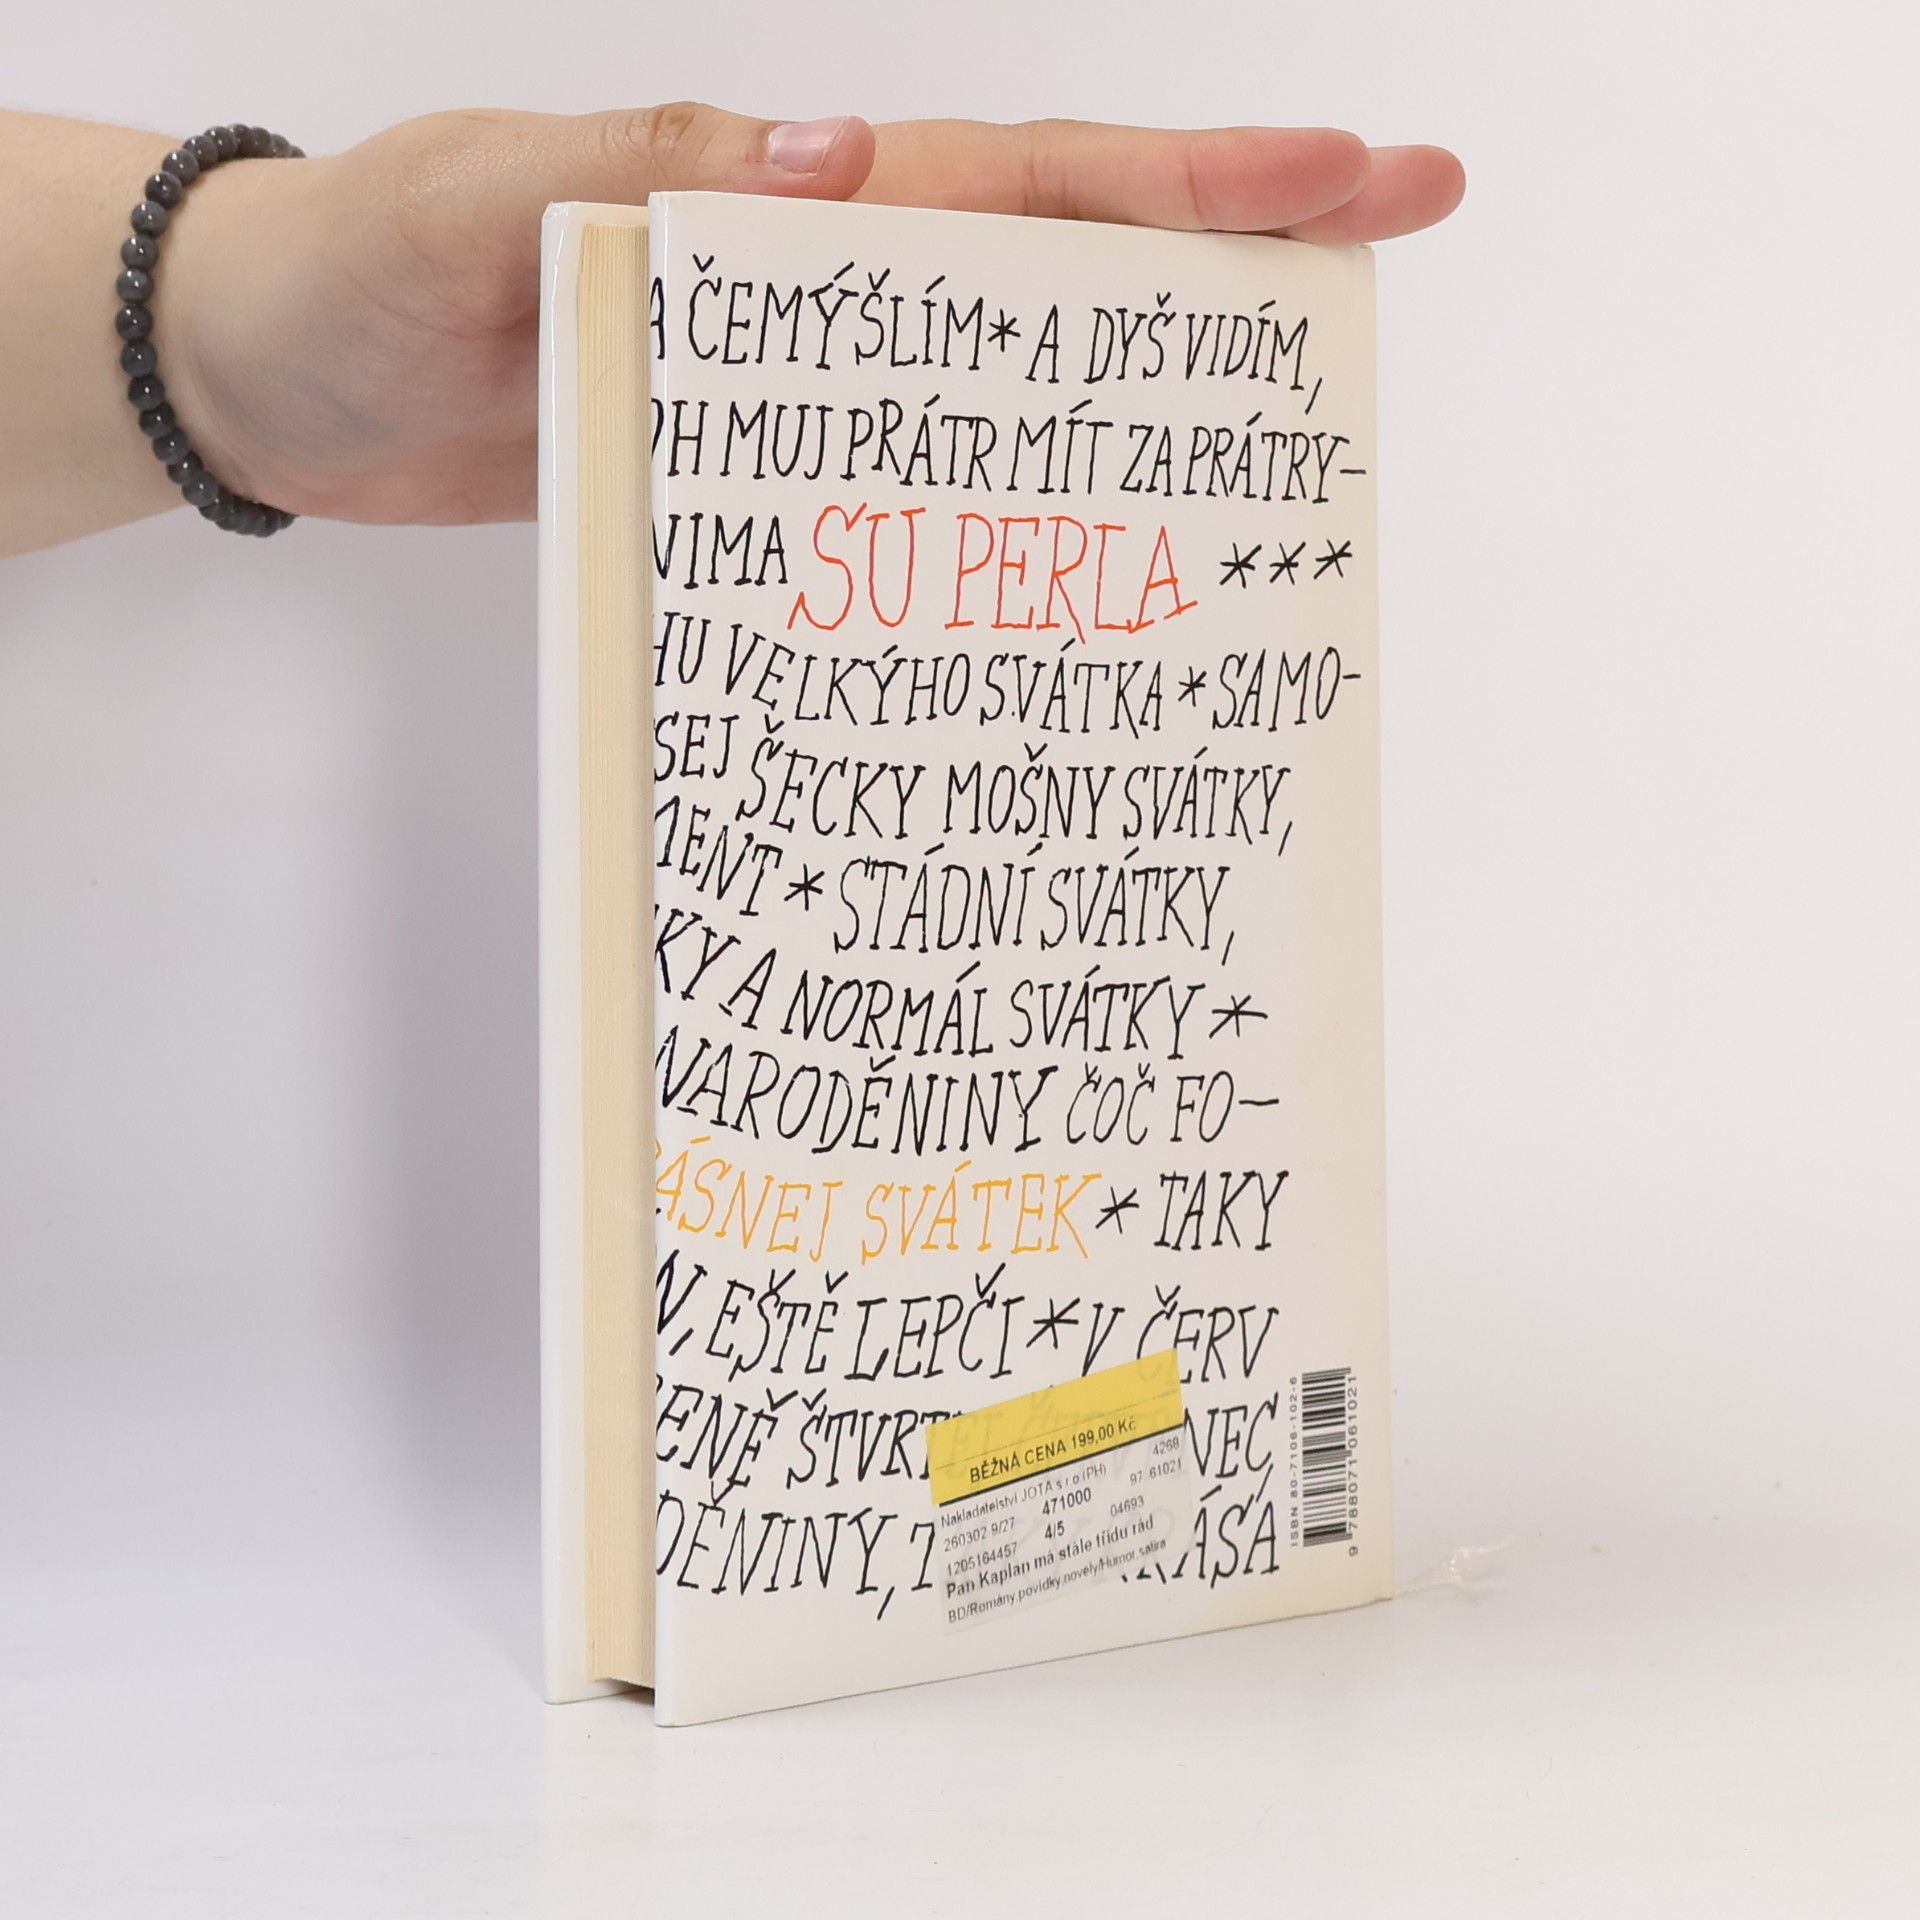 A ČEMÝŠLÍM * A DYŠ VIDÍM,
H MUJ PRÁTR MÍT ZA PRÁTRY-
NIMA SU PERLA ***
HU VELKÝHO SVÁTKA * SAMO-
SEJ ŠECKY MOŠNY SVÁTKY,
MENT * STÁDNÍ SVÁTKY,
KY A NORMÁL SVÁTKY *
NARODĚNINY ČOČ FO-
ÁSNEJ SVÁTEK * TAKY
N, EŠTĚ LEPČI * V ČERV
ENĚ ŠTVRT NEC,
DĚNINY, ÁSA
BĚŽNÁ CENA 199,00 Kč
Nakladatelství JOTA s r.o (PH) 4268
260302 9/27 471000 97 61021
1205164457 4/5 04693
Pan Kaplan má stále třídu rád
BD/Romány,povídky,novely/Humor,satira
ISBN 80-7106-102-6
9 788071 061021